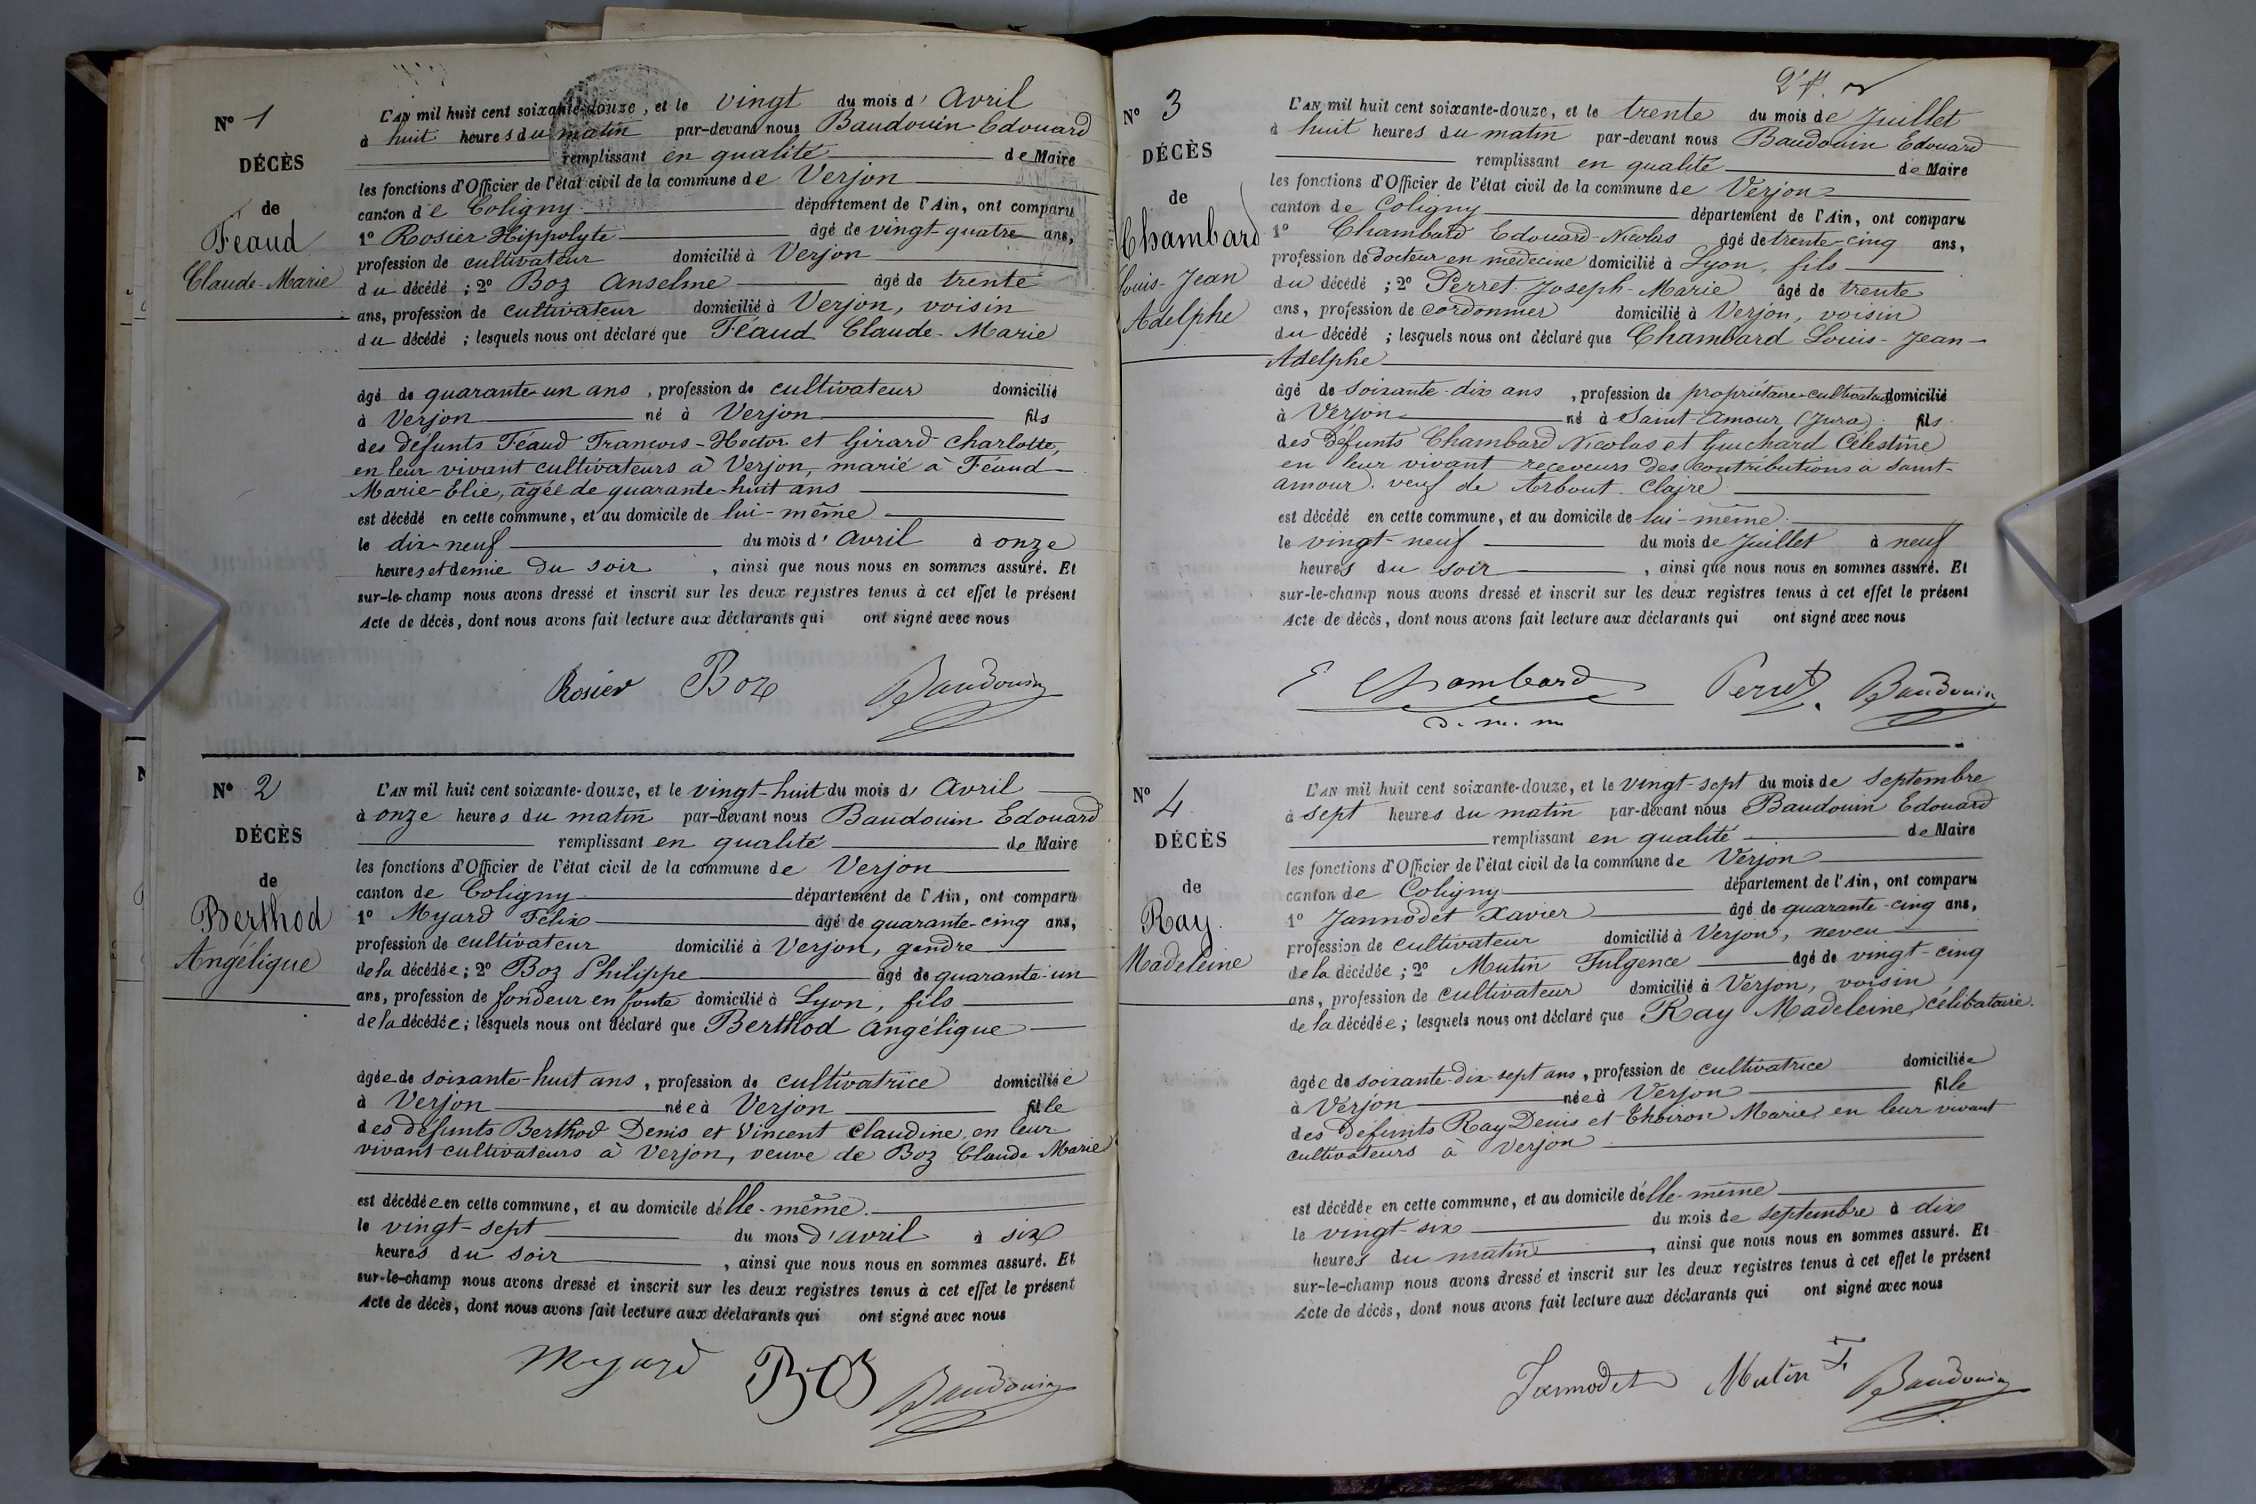 Nº 1
DÉCÈS
de
Féaud
Claude-Marie
L'AN mil huit cent soixante-douze, et le vingt du mois d' Avril
à huit heures du matin par-devant nous Baudouin Edouard
remplissant en qualité de Maire
les fonctions d'Officier de l'état civil de la commune de Verjon
canton de Coligny département de l'Ain, ont comparu
1º Rosier Hippolyte âgé de vingt quatre ans,
profession de cultivateur domicilié à Verjon
du décédé ; 2º Boz Anselme âgé de trente
ans, profession de cultivateur domicilié à Verjon, voisin
du décédé ; lesquels nous ont déclaré que Féaud Claude-Marie
âgé de quarante-un ans, profession de cultivateur domicilié
à Verjon né à Verjon fils
des défunts Féaud François-Hector et Girard Charlotte,
en leur vivant cultivateurs à Verjon, marié à Féaud
Marie-Elie, âgée de quarante-huit ans
est décédé en cette commune, et au domicile de lui-même
le dix-neuf du mois d' Avril à onze
heures et demie du soir, ainsi que nous nous en sommes assuré. Et
sur-le-champ nous avons dressé et inscrit sur les deux registres tenus à cet effet le présent
Acte de décès, dont nous avons fait lecture aux déclarants qui ont signé avec nous
Rosier Boz Baudouin
Nº 2
DÉCÈS
de
Berthod
Angélique
L'AN mil huit cent soixante-douze, et le vingt-huit du mois d' Avril
à onze heures du matin par-devant nous Baudouin Edouard
remplissant en qualité de Maire
les fonctions d'Officier de l'état civil de la commune de Verjon
canton de Coligny département de l'Ain, ont comparu
1º Myard Félix âgé de quarante-cinq ans,
profession de cultivateur domicilié à Verjon, gendre
de la décédée ; 2º Boz Philippe âgé de quarante-un
ans, profession de fondeur en fonte domicilié à Lyon, fils
de la décédée ; lesquels nous ont déclaré que Berthod Angélique
âgée de soixante-huit ans, profession de cultivatrice domiciliée
à Verjon née à Verjon fille
des défunts Berthod Denis et Vincent Claudine, en leur
vivant cultivateurs à Verjon, veuve de Boz Claude Marie
est décédée en cette commune, et au domicile délle-même
le vingt-sept du mois d'avril à six
heures du soir, ainsi que nous nous en sommes assuré. Et
sur-le-champ nous avons dressé et inscrit sur les deux registres tenus à cet effet le présent
Acte de décès, dont nous avons fait lecture aux déclarants qui ont signé avec nous
Myard Boz Baudouin
Nº 3
DÉCÈS
de
Chambard
Louis-Jean
Adelphe
L'AN mil huit cent soixante-douze, et le trente du mois de Juillet
à huit heures du matin par-devant nous Baudouin Edouard
remplissant en qualité de Maire
les fonctions d'Officier de l'état civil de la commune de Verjon
canton de Coligny département de l'Ain, ont comparu
1º Chambard Edouard-Nicolas âgé de trente-cinq ans,
profession de docteur en médecine domicilié à Lyon, fils
du décédé ; 2º Perret Joseph-Marie âgé de trente
ans, profession de cordonnier domicilié à Verjon, voisin
du décédé ; lesquels nous ont déclaré que Chambard Louis-Jean-
Adelphe
âgé de soixante-dix ans, profession de propriétaire-cultivateur domicilié
à Verjon né à Saint-Amour (Jura) fils
des défunts Chambard Nicolas et Guichard Célestine
en leur vivant receveurs des contributions à Saint-
amour. veuf de Arbout Claire
est décédé en cette commune, et au domicile de lui-même
le vingt-neuf du mois de Juillet à neuf
heures du soir, ainsi que nous nous en sommes assuré. Et
sur-le-champ nous avons dressé et inscrit sur les deux registres tenus à cet effet le présent
Acte de décès, dont nous avons fait lecture aux déclarants qui ont signé avec nous
E Chambard Perret Baudouin
d. m. m
Nº 4
DÉCÈS
de
Ray
Madeleine
L'AN mil huit cent soixante-douze, et le vingt-sept du mois de Septembre
à sept heures du matin par-devant nous Baudouin Edouard
remplissant en qualité de Maire
les fonctions d'Officier de l'état civil de la commune de Verjon
canton de Coligny département de l'Ain, ont comparu
1º Jannodet Xavier âgé de quarante-cinq ans,
profession de cultivateur domicilié à Verjon, neveu
de la décédée ; 2º Mutin Fulgence âgé de vingt-cinq
ans, profession de cultivateur domicilié à Verjon, voisin
de la décédée ; lesquels nous ont déclaré que Ray Madeleine, célibataire
âgée de soixante-dix-sept ans, profession de cultivatrice domiciliée
à Verjon née à Verjon fille
des défunts Ray Denis et Thoiron Marie, en leur vivant
cultivateurs à Verjon
est décédée en cette commune, et au domicile délle-même
le vingt-six du mois de Septembre à dix
heures du matin, ainsi que nous nous en sommes assuré. Et
sur-le-champ nous avons dressé et inscrit sur les deux registres tenus à cet effet le présent
Acte de décès, dont nous avons fait lecture aux déclarants qui ont signé avec nous
Jannodet Mutin F. Baudouin